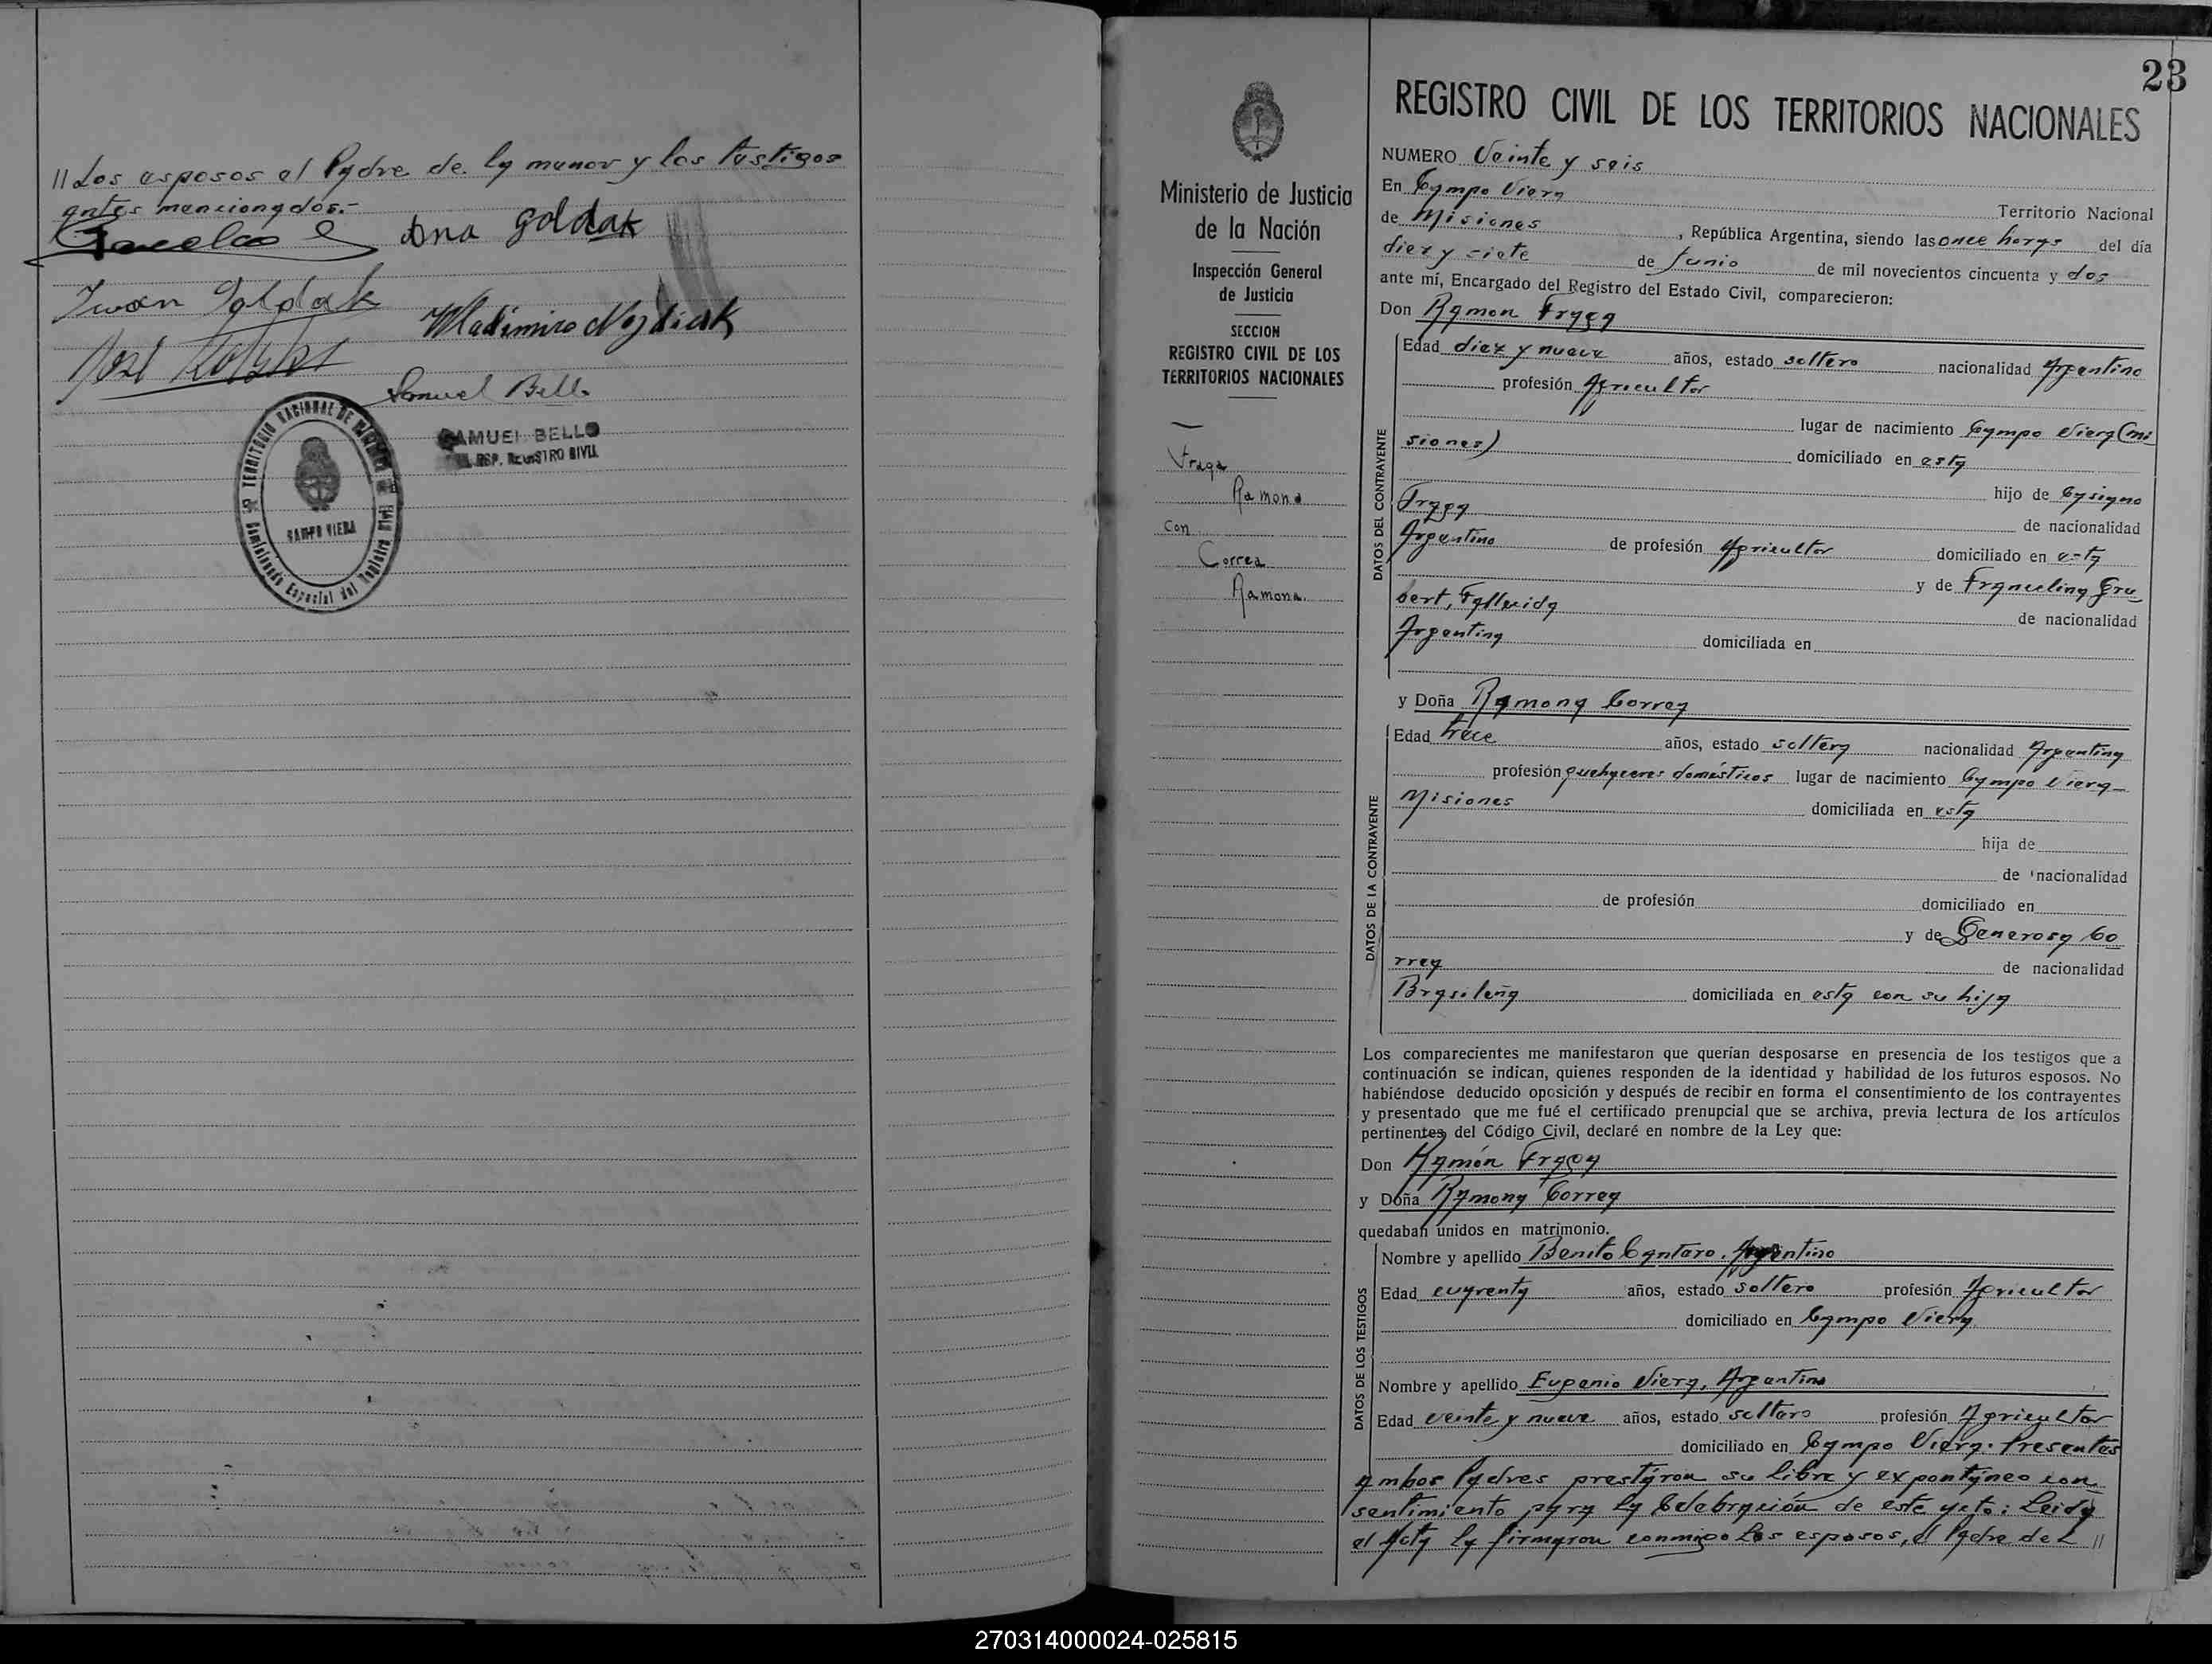 // Los esposos el Padre de la menor y los testigos
antes mencionados.-
Ana Goldak
Iwan Goldak
Wladimiro
José
Samuel Bello
SAMUEL BELLO
ESP. REGISTRO CIVIL
TERRITORIO NACIONAL DE MISIONES
CAMPO VIERA
Comisionado Especial del Registro Civil
23
Ministerio de Justicia
de la Nación
Inspección General
de Justicia
SECCION
REGISTRO CIVIL DE LOS
TERRITORIOS NACIONALES
Fraga
Ramona
Con
Correa
Ramona.
REGISTRO CIVIL DE LOS TERRITORIOS NACIONALES
NUMERO Veinte y seis
En Campo Viera Territorio Nacional
de Misiones, República Argentina, siendo las once horas del día
diez y siete de Junio de mil novecientos cincuenta y dos
ante mí, Encargado del Registro del Estado Civil, comparecieron:
Don Ramon Fraga
DATOS DEL CONTRAYENTE
Edad diez y nueve años, estado soltero nacionalidad Argentino
profesión Agricultor
lugar de nacimiento Campo Viera (Mi
siones) domiciliado en esta
hijo de Casigno
Fraga de nacionalidad
Argentino de profesión Agricultor domiciliado en esta
y de Francelina Gru_
bert, Fallecida de nacionalidad
Argentina domiciliada en
y Doña Ramona Correa
DATOS DE LA CONTRAYENTE
Edad trece años, estado soltera nacionalidad Argentina
profesión quehaceres domésticos lugar de nacimiento Campo Viera_
Misiones domiciliada en esta
hija de
de nacionalidad
de profesión domiciliado en
y de Generosa Co
rrea de nacionalidad
Brasileña domiciliada en esta con su hija
Los comparecientes me manifestaron que querían desposarse en presencia de los testigos que a
continuación se indican, quienes responden de la identidad y habilidad de los futuros esposos. No
habiéndose deducido oposición y después de recibir en forma el consentimiento de los contrayentes
y presentado que me fué el certificado prenupcial que se archiva, previa lectura de los artículos
pertinentes del Código Civil, declaré en nombre de la Ley que:
Don Ramón Fraga
y Doña Ramona Correa
quedaban unidos en matrimonio.
DATOS DE LOS TESTIGOS
Nombre y apellido Benito Cantaro. Argentino
Edad cuarenta años, estado soltero profesión Agricultor
domiciliado en Campo Viera
Nombre y apellido Eugenio Viera, Argentino
Edad veinte y nueve años, estado soltero profesión Agricultor
domiciliado en Campo Viera. Presentes
ambos Padres prestaron su libre y expontaneo con_
sentimiento para la Celebración de este acto: Leida
el Acta la firmaron conmigo Los esposos, el Padre de L //
270314000024-025815